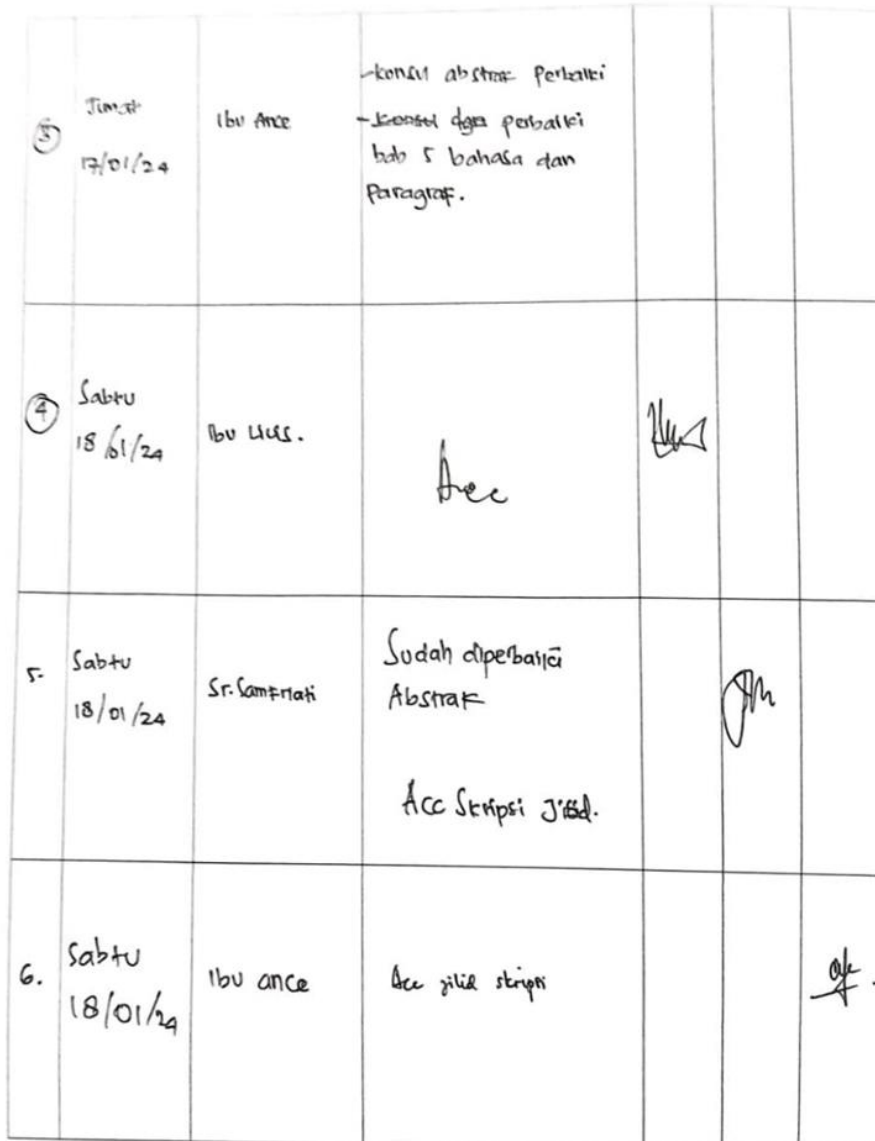 3 Jumat
17/01/24
Ibu Ance
-konsul abstrak Perbaiki
- dgn perbaiki
bab 5 bahasa dan
Paragraf.
4 Sabtu
18/01/24
Ibu
Acc
5. Sabtu
18/01/24
Sr. Samfriati
Sudah diperbaiki
Abstrak
Acc Skripsi Jilid.
6. Sabtu
18/01/24
Ibu ance
Acc jilid skripsi